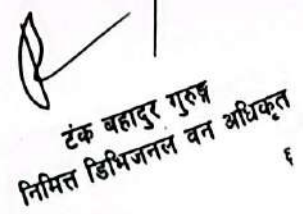 टंक बहादुर गुरुङ्ग
निमित्त डिभिजनल वन अधिकृत
६